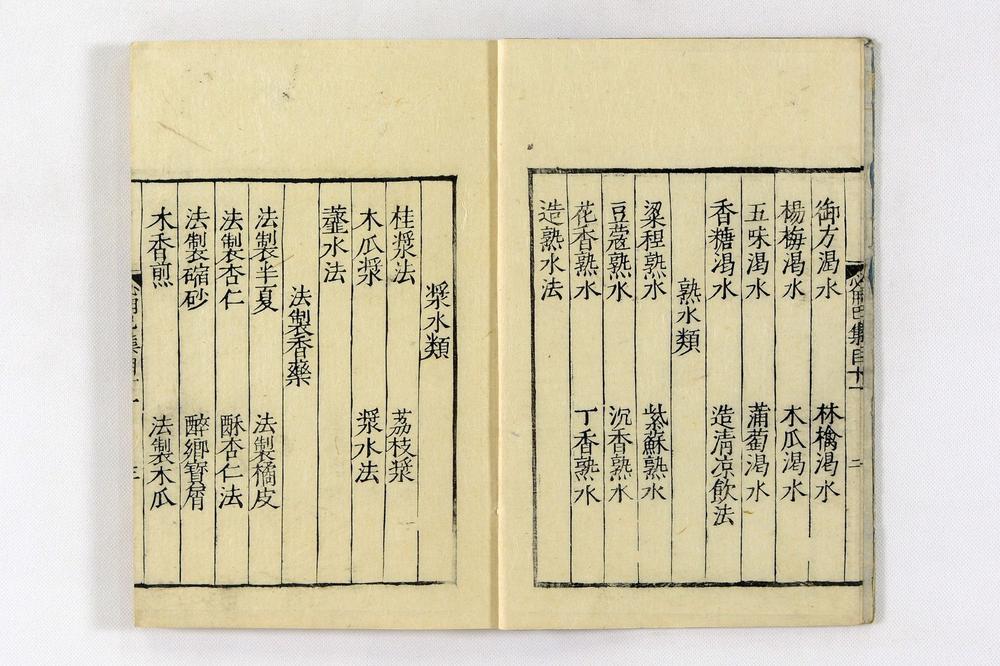 御方渴水 林檎渴水
楊梅渴水 木瓜渴水
五味渴水 蒲萄渴水
香糖渴水 造清凉飲法
熟水類
粱稈熟水 紫蘇熟水
豆蔻熟水 沉香熟水
花香熟水 丁香熟水
造熟水法
漿水類
桂漿法 荔枝漿
木瓜漿 漿水法
虀水法
法製香藥
法製半夏 法製橘皮
法製杏仁 酥杏仁法
法製縮砂 醉鄉寶屑
木香煎 法製木瓜
集目 二